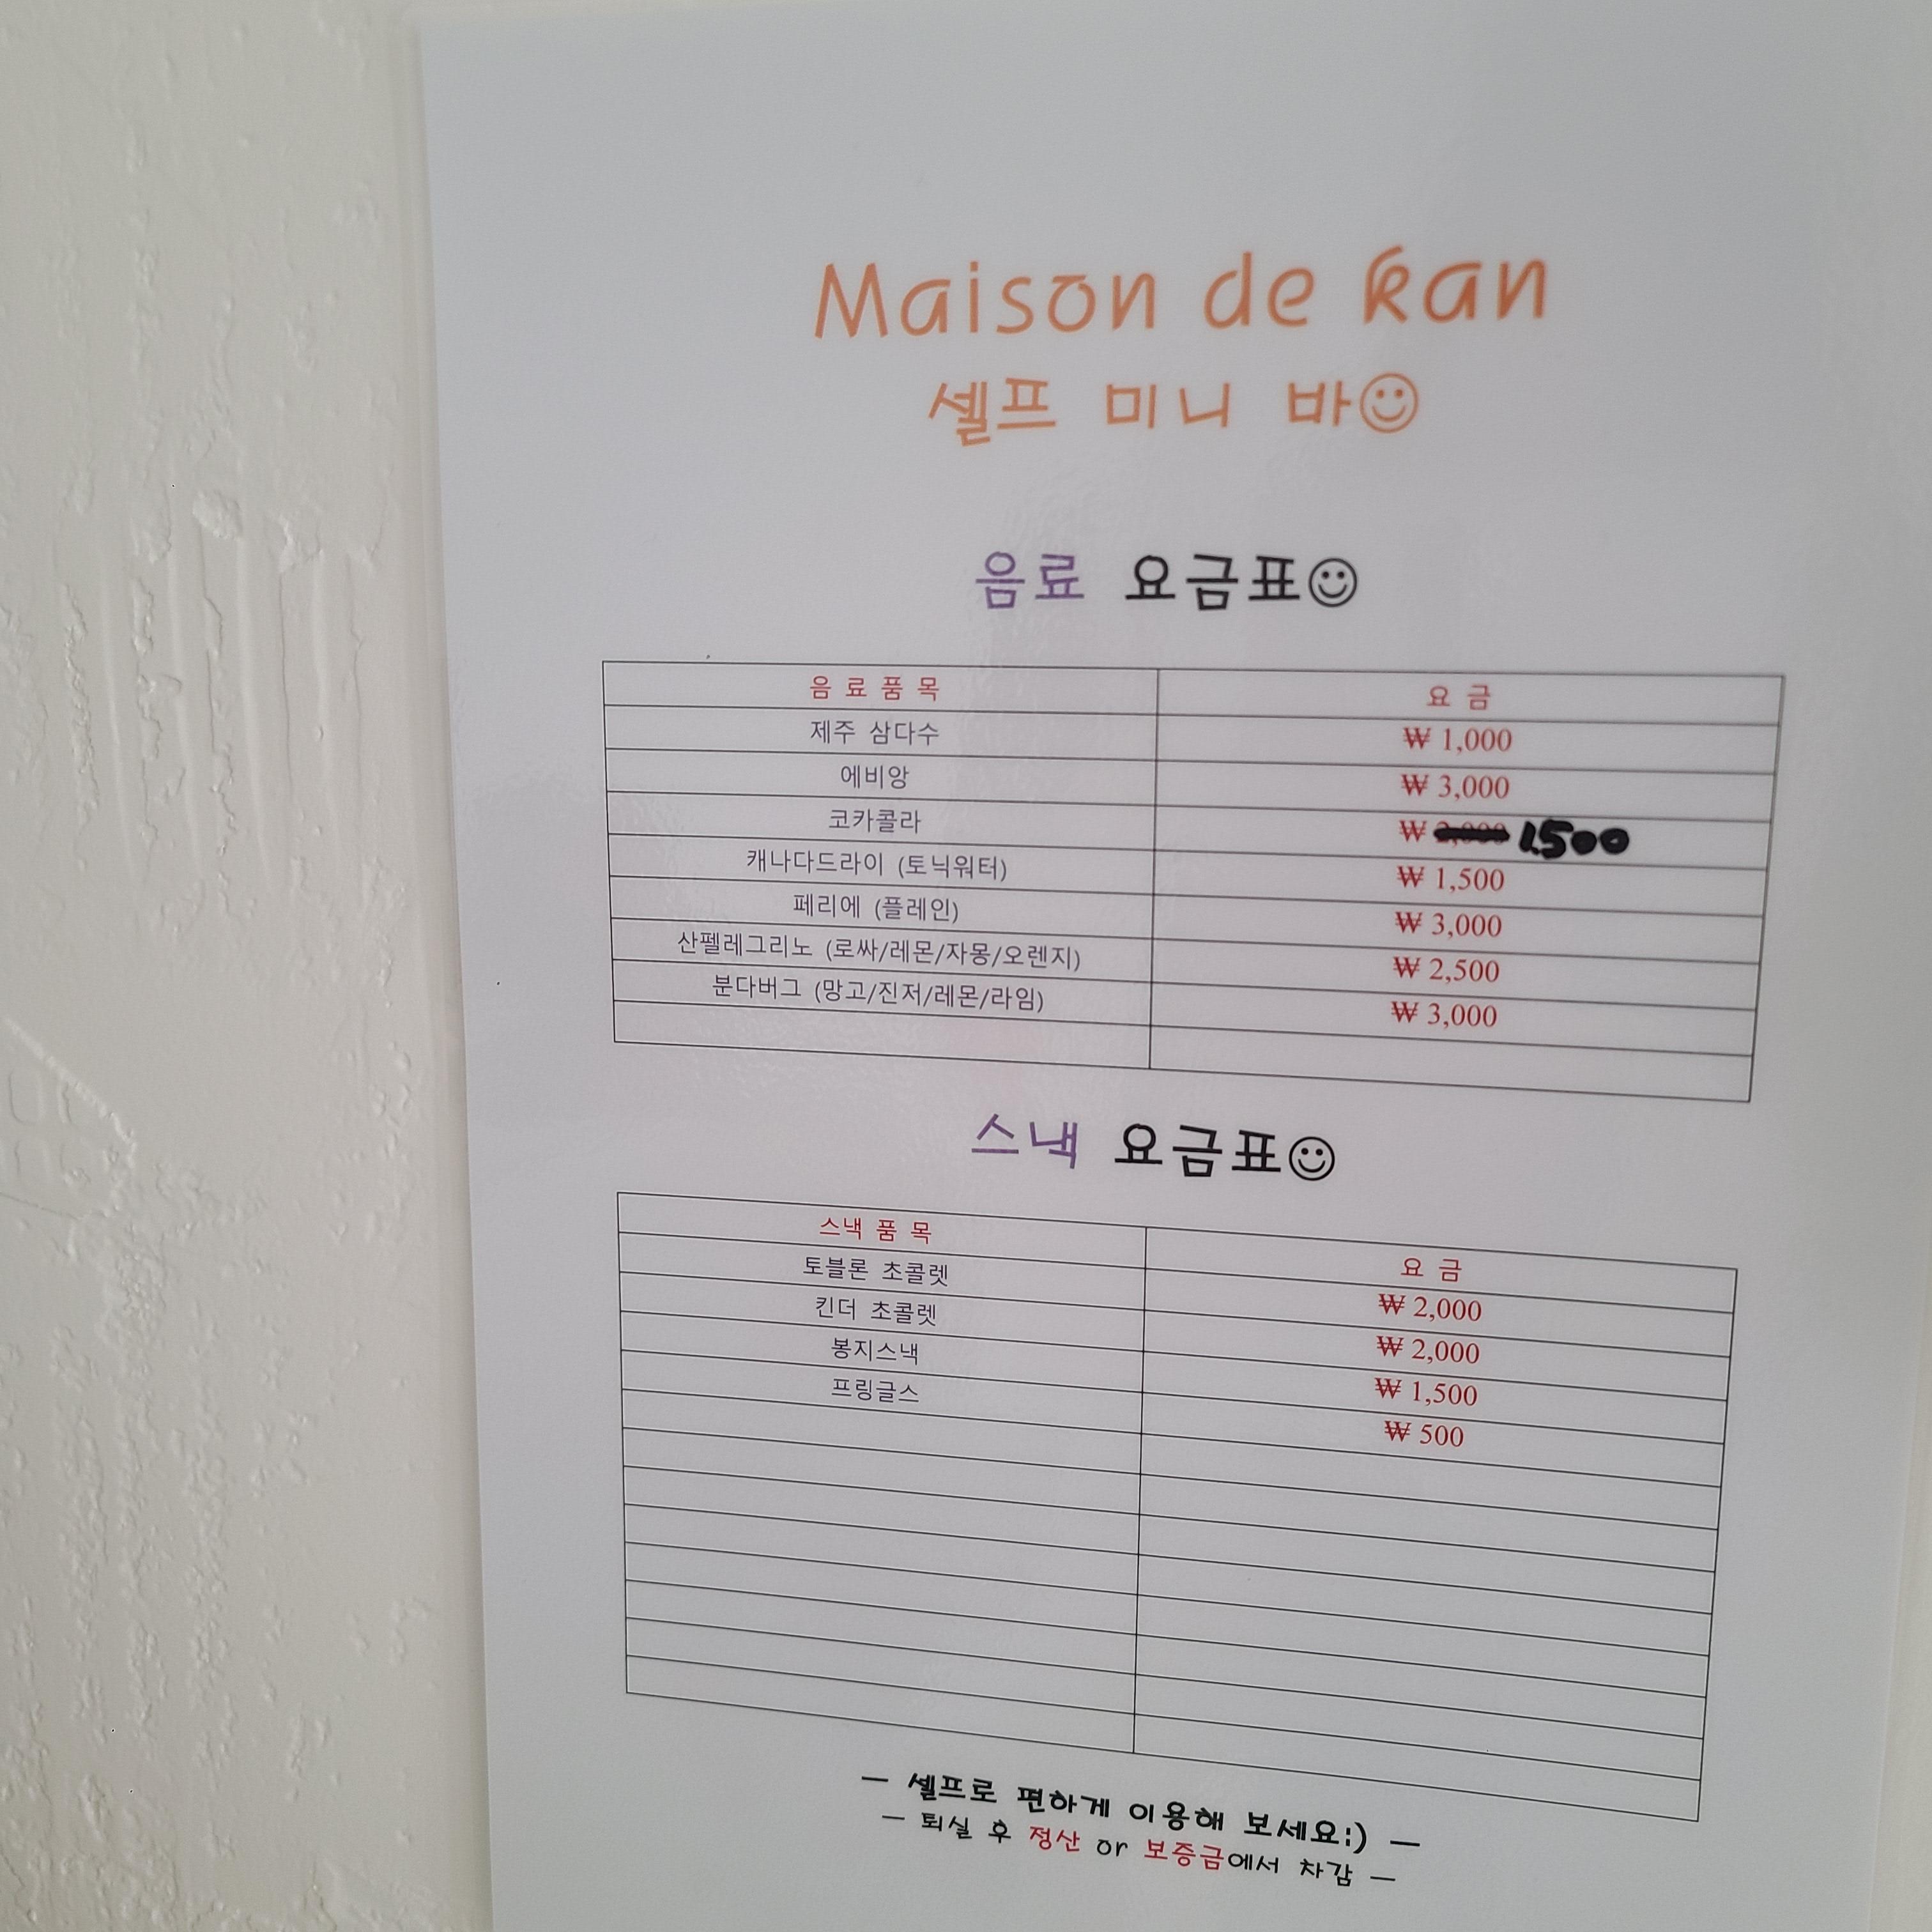 Maison de kan
셀프 미니 바☺
음료 요금표☺
음 료 품 목 요 금
제주 삼다수 ₩ 1,000
에비앙 ₩ 3,000
코카콜라 ₩ 2,000 1.500
캐나다드라이 (토닉워터) ₩ 1,500
페리에 (플레인) ₩ 3,000
산펠레그리노 (로싸/레몬/자몽/오렌지) ₩ 2,500
분다버그 (망고/진저/레몬/라임) ₩ 3,000
스낵 요금표☺
스낵 품 목 요 금
토블론 초콜렛 ₩ 2,000
킨더 초콜렛 ₩ 2,000
봉지스낵 ₩ 1,500
프링글스 ₩ 500
— 셀프로 편하게 이용해 보세요:) —
— 퇴실 후 정산 or 보증금에서 차감 —